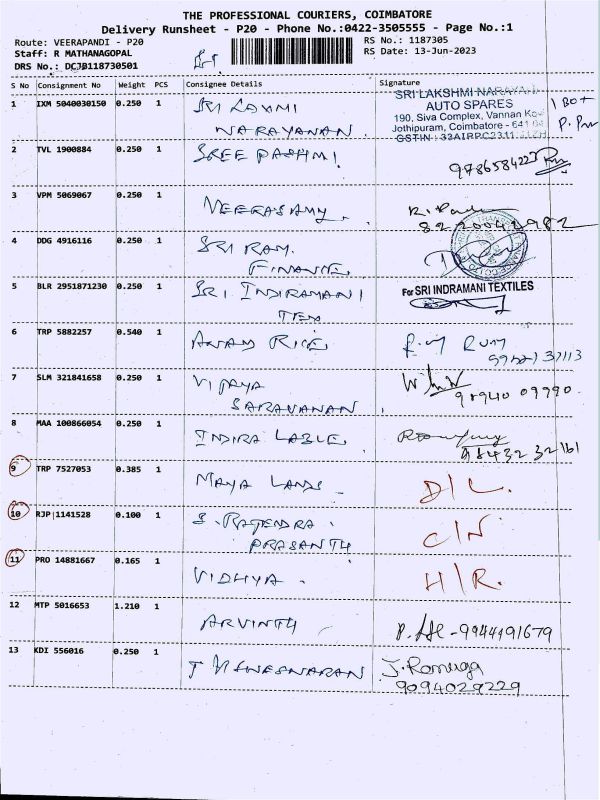 THE PROFESSIONAL COURIERS, COIMBATORE
Delivery Runsheet - P20 - Phone No.:0422-3505555 - Page No.:1
Route: VEERAPANDI - P20 RS No.: 1187305
Staff: R MATHANAGOPAL RS Date: 13-Jun-2023
DRS No.: DCJB118730501
S No Consignment No Weight PCS Consignee Details Signature
1 IXM 5040030150 0.250 1 SRI LAXMI
NARAYANAN
SRI LAKSHMI NARAYANA
AUTO SPARES
190, Siva Complex, Vannan Kov
Jothipuram, Coimbatore - 641
GSTIN : 33AIRPC2311
1 Box
2 TVL 1900884 0.250 1 SREE PADHMI.
9786584223
3 VPM 5069067 0.250 1 VEERASAMY.
4 DDG 4916116 0.250 1 SRI RAM.
FINANCE
5 BLR 2951871230 0.250 1 SRI INDIRAMANI
TEX
For SRI INDRAMANI TEXTILES
6 TRP 5882257 0.540 1 ANAND RICE
7 SLM 321841658 0.250 1 VIJAYA
SARAVANAN
98940 09990
8 MAA 100866054 0.250 1 INDIRA LABLE
98432 32161
9 TRP 7527053 0.385 1 MAYA LANDS - D/L.
10 RJP 1141528 0.100 1 S. RAJENDRA
PRASANTH
C/N
11 PRO 14881667 0.165 1 VIDHYA. H/R.
12 MTP 5016653 1.210 1 ARVINTH
-9944191679
13 KDI 556016 0.250 1 T VIGNESHARAN J. Ramuga
9094029229